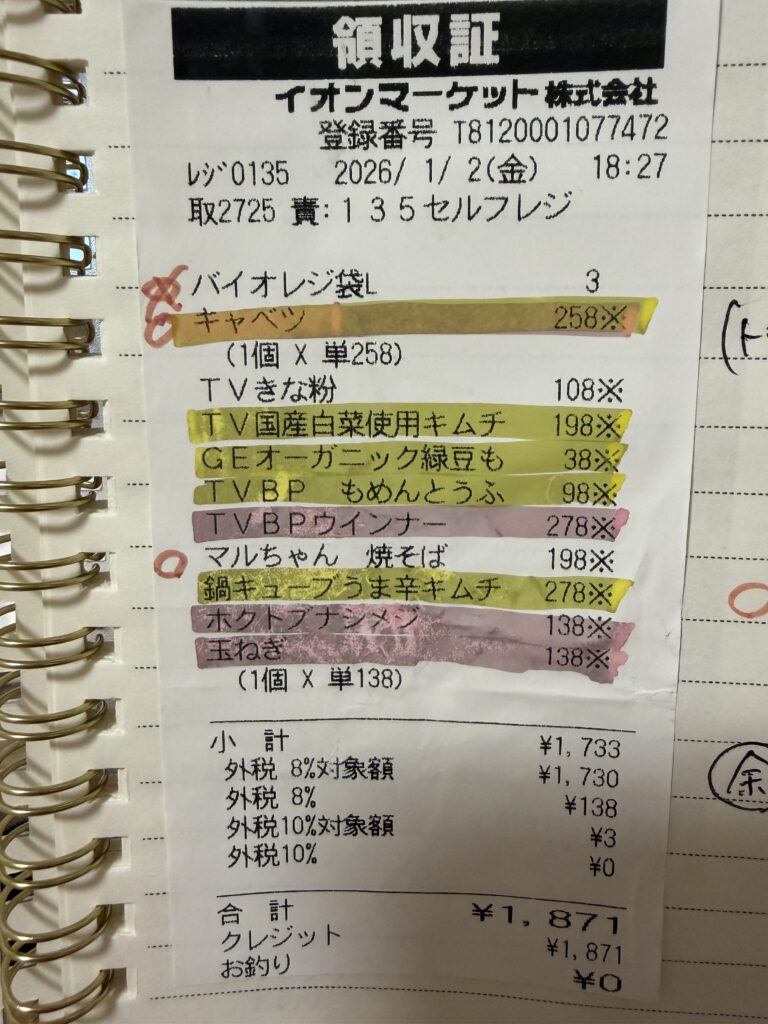 領収証
イオンマーケット株式会社
登録番号 T8120001077472
ﾚｼﾞ0135 2026/ 1/ 2(金) 18:27
取2725 責:135セルフレジ
バイオレジ袋L 3
キャベツ 258※
(1個 X 単258)
TVきな粉 108※
TV国産白菜使用キムチ 198※
GEオーガニック緑豆も 38※
TVBP もめんとうふ 98※
TVBPウインナー 278※
マルちゃん 焼そば 198※
鍋キューブうま辛キムチ 278※
ホクトブナシメジ 138※
玉ねぎ 138※
(1個 X 単138)
小 計 ¥1,733
外税 8%対象額 ¥1,730
外税 8% ¥138
外税10%対象額 ¥3
外税10% ¥0
合 計 ¥1,871
クレジット ¥1,871
お釣り ¥0